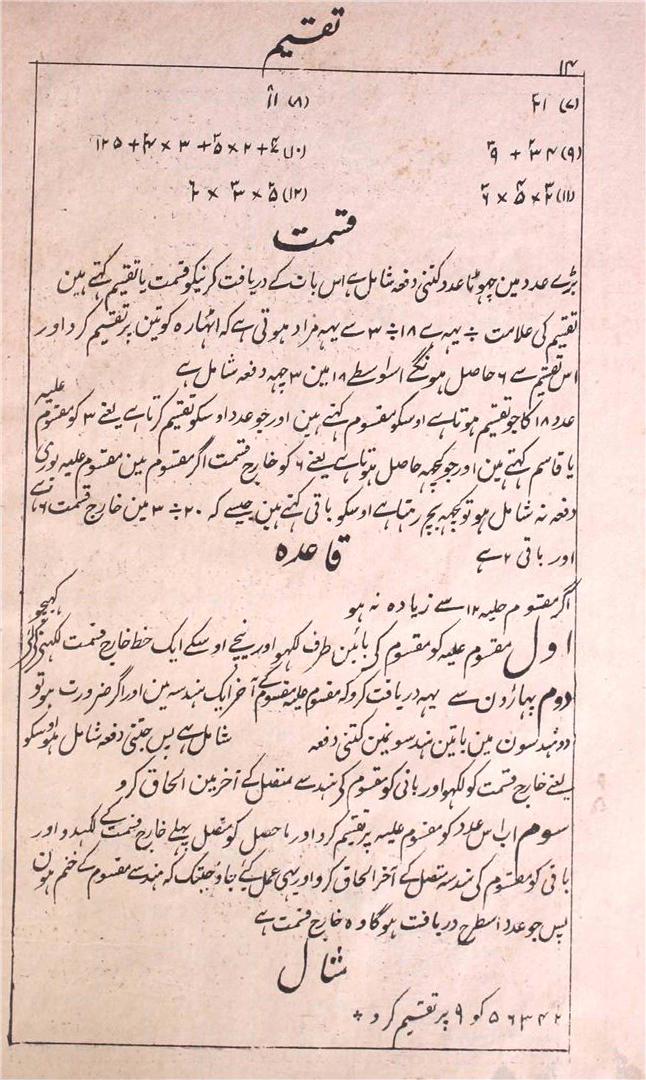 تقسیم
۱۴
(۷) ۲۱ (۸) ۱۱
(۹) ۳۴ + ۹
(۱۲)
قسمت
بڑے عدد مین چھوٹا عدد کتنی دفعہ شامل ہے اس بات کے دریافت کرنیکو قسمت یا تقسیم کہتے ہین
تقسیم کی علامت ÷ یہہ ہے ۱۸ ÷ ۳ سے یہہ مراد ہوتی ہے کہ اٹھارہ کو تین پر تقسیم کرو اور
اس تقسیم سے ۶ حاصل ہونگے اسواسطے ۱۸ مین ۳ چہہ دفعہ شامل ہے
عدد ۱۸ کا جو تقسیم ہوتا ہے اوسکو مقسوم کہتے ہین اور جو عدد اوسکو تقسیم کرتا ہے یعنے ۳ کو مقسوم علیہ
یا قاسم کہتے ہین اور جو کچہہ حاصل ہوتا ہے یعنے ۶ کو خارج قسمت اگر مقسوم مین مقسوم علیہ پوری
دفعہ نہ شامل ہو تو کچہہ بچ رہتا ہے اوسکو باقی کہتے ہین جیسے کہ ۲۰ ÷ ۳ مین خارج قسمت ۶ ہے
اور باقی ۲ ہے
قاعدہ
اگر مقسوم علیہ ۱۲ سے زیادہ نہ ہو
اول مقسوم علیہ کو مقسوم کی بائین طرف لکھو اور نیچے اوسکے ایک خط خارج قسمت لکھنے کو کھینچو
دوم پہاڑون سے یہہ دریافت کرو کہ مقسوم علیہ مقسوم کے آخر ایک ہندسہ مین اور اگر ضرورت ہو تو
دو ہندسون مین یا تین ہندسونمین کتنی دفعہ شامل ہے پس جتنی دفعہ شامل ہو اوسکو
یعنے خارج قسمت کو لکھو اور باقی کو مقسوم کے ہندسے متصل کے آخر مین الحاق کرو
سوم اب اس عدد کو مقسوم علیہ پر تقسیم کرو اور ماحصل کو متصل پہلے خارج قسمت کے لکھدو اور
باقی کو مقسوم کی ہندسہ متصل کے آخر الحاق کرو اور یہی عمل کیے جاؤ جبتک کہ ہندسے مقسوم کے ختم ہون
پس جو عدد اسطرح دریافت ہوگا وہ خارج قسمت ہے
مثال
۵۶۳۴۲ کو ۹ پر تقسیم کرو